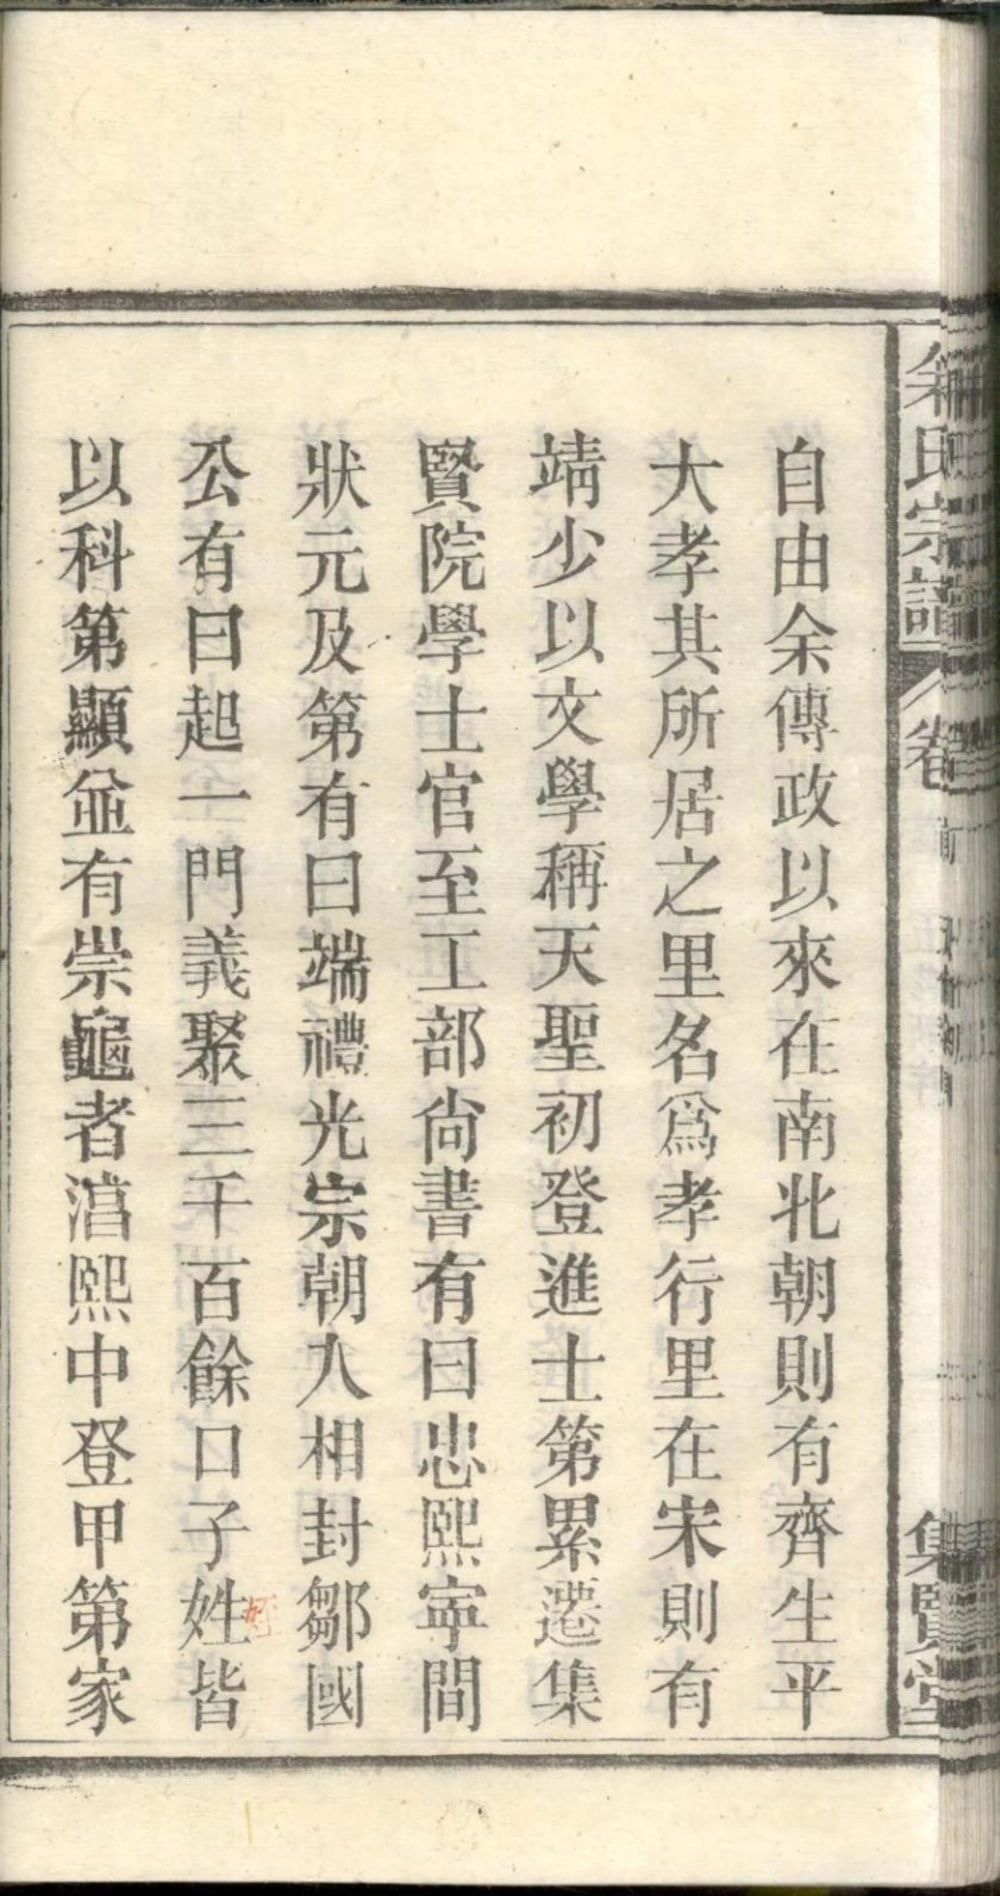 余氏宗譜 卷首 集賢堂
自由余傳政以來在南北朝則有齊生平
大孝其所居之里名爲孝行里在宋則有
靖少以文學稱天聖初登進士第累遷集
賢院學士官至工部尙書有曰忠熙寧間
狀元及第有曰端禮光宗朝入相封鄒國
公有曰起一門義聚三千百餘口子姓皆
以科第顯並有崇龜者淳熙中登甲第家